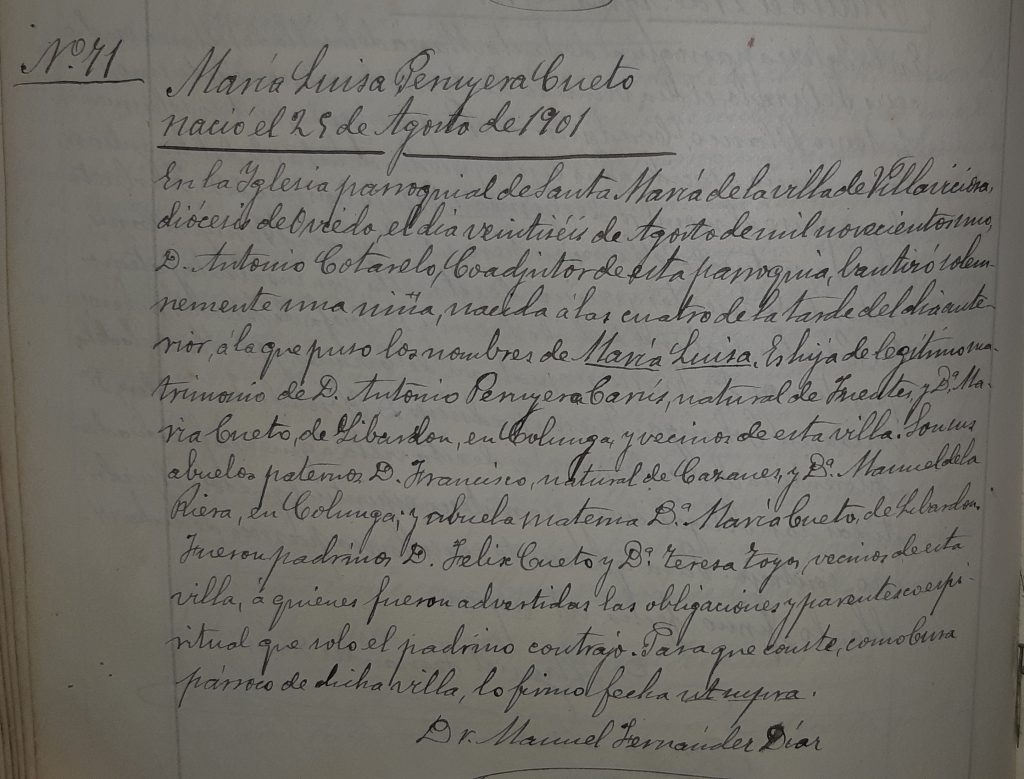 Nº. 71
María Luisa Peruyera Cueto
nació el 25 de Agosto de 1901
En la Iglesia parroquial de Santa María de la villa de Villaviciosa,
diócesis de Oviedo, el día veintiséis de Agosto de mil novecientos uno,
D. Antonio Cotarelo, Coadjutor de esta parroquia, bautizó solem-
nemente una niña, nacida á las cuatro de la tarde del dia ante-
rior, á la que puso los nombres de María Luisa. Es hija de legítimo ma-
trimonio de D. Antonio Peruyera Carús, natural de Fuentes, y Dª. Ma-
ría Cueto, de Libardon, en Colunga, y vecinos de esta villa. Son sus
abuelos paternos D. Francisco, natural de Cazanes, y Dª. Manuel de la
Riera, en Colunga; y abuela materna D.ª María Cueto, de Libardon.
Fueron padrinos D. Felix Cueto y Dª. Teresa Toyos, vecinos de esta
villa, á quienes fueron advertidas las obligaciones y parentesco espi-
ritual que solo el padrino contrajo. Para que conste, como Cura
párroco de dicha villa, lo firmo fecha ut supra.
Dr. Manuel Fernández Díaz